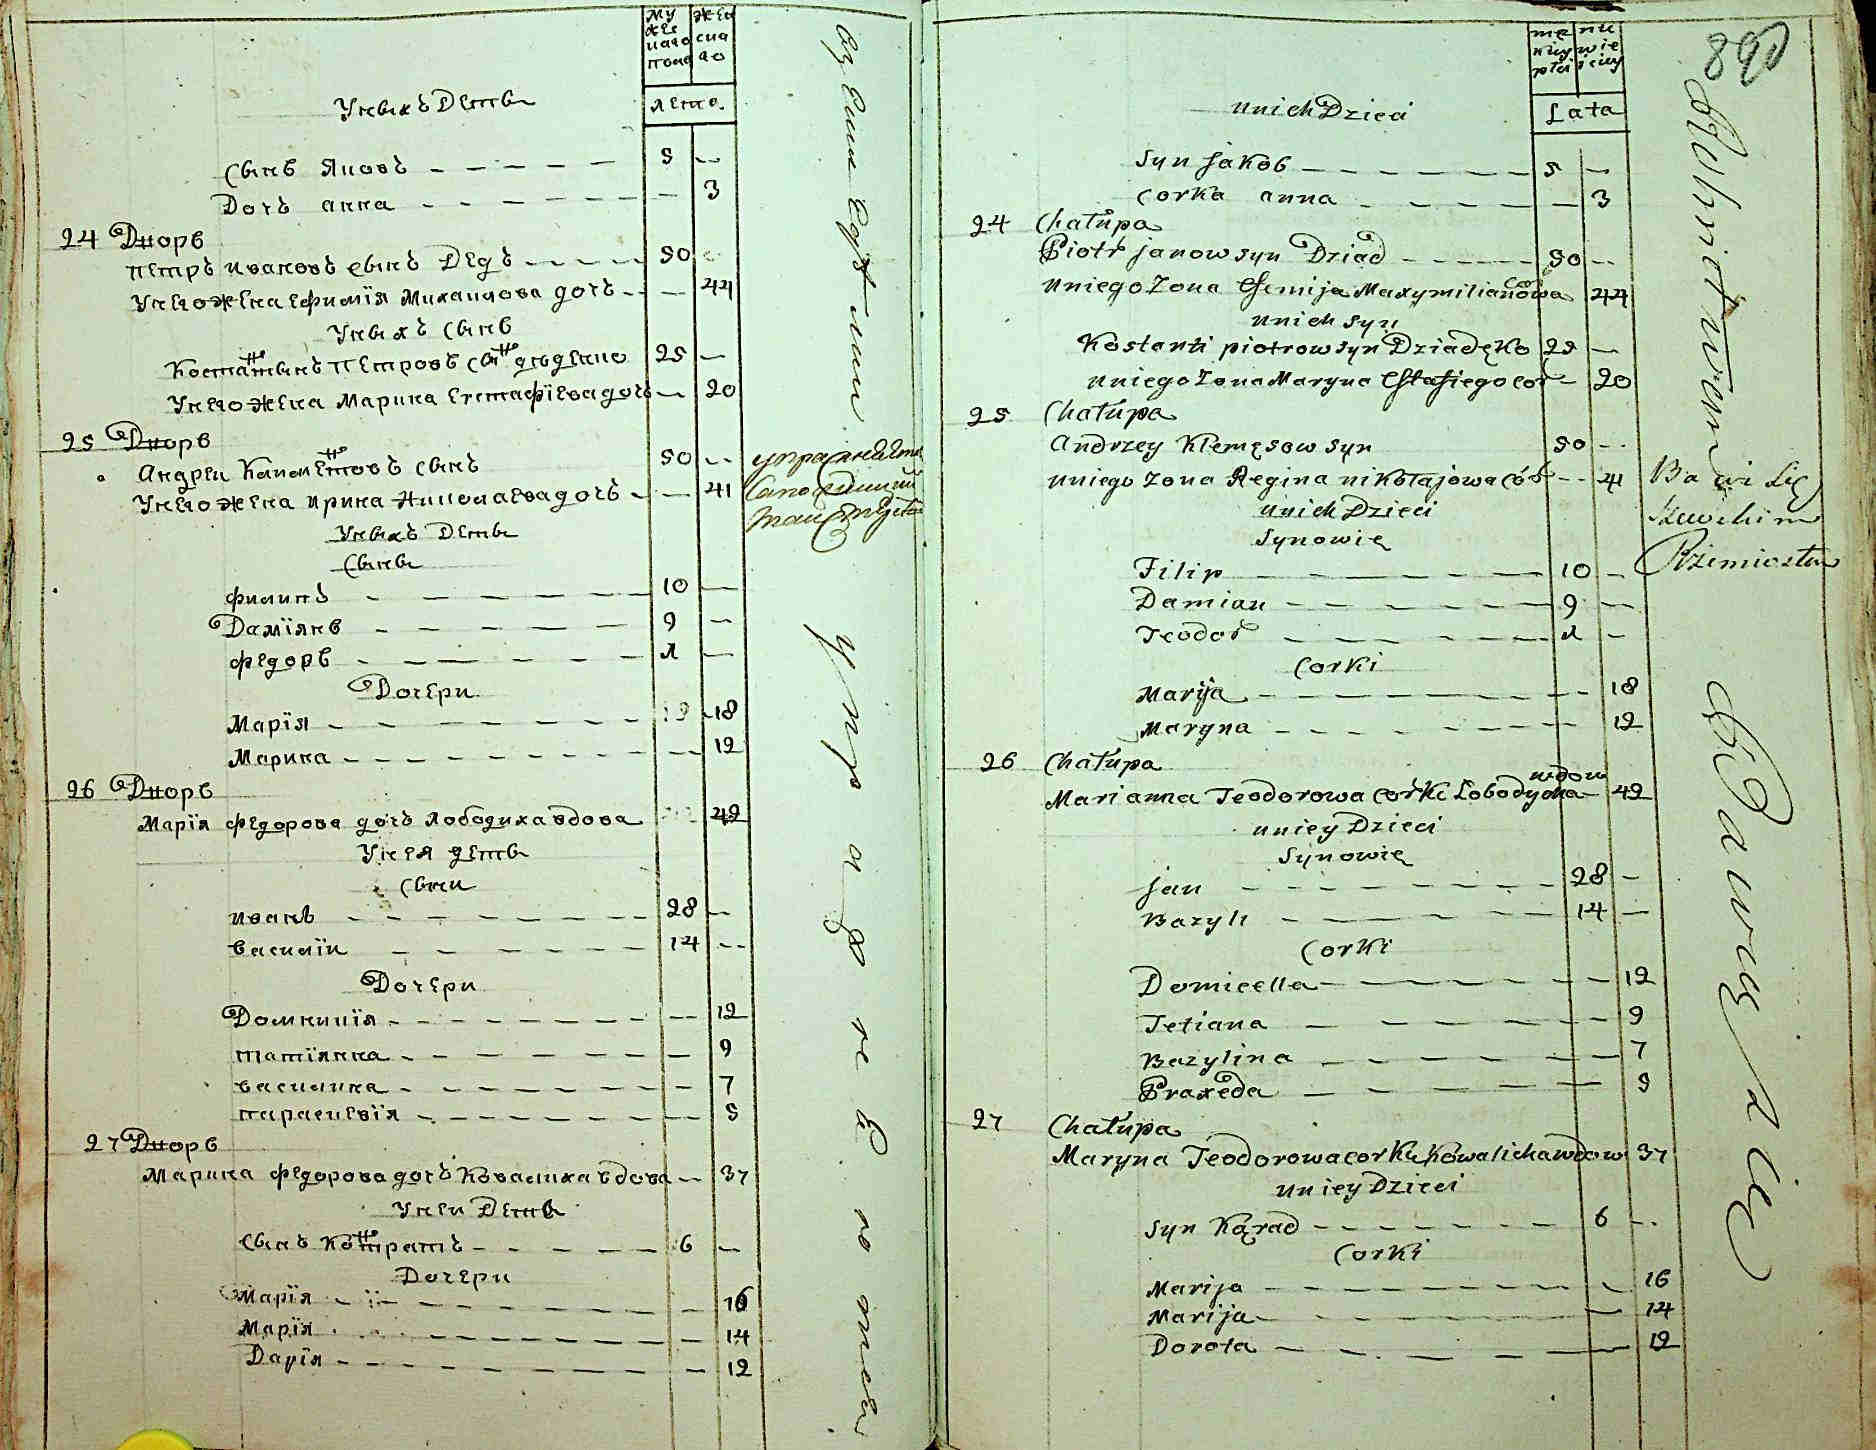 му же ска го пола
жен ска го
Унихъ Дети
лета.
Сынъ Яковъ 5 --
Дочъ анна — 3
24 Дворъ
петръ ивановъ сынъ Дедъ 50 --
Унего жена ефимія Михаилова дочъ — 44
Унихъ Сынъ
Костантынъ петровъ сынъ деденко 25 —
Унего жена Марина Евстафіева дочъ — 20
25 Дворъ
Андрей Клементовъ сынъ 50 --
Унего жена ирина Николаева дочъ — 41
Унихъ Дети
Сыны
филипъ 10 —
Даміянъ 9 —
федоръ 1 —
Дочери
Марія 18
Марина — 12
26 Дворъ
Марія федорова дочъ лободиха вдова 42
Унея дети
Сыни
иванъ 28 —
василій 14 --
Дочери
Домникія — 12
татіянна — 9
василина — 7
параскевія — 5
27 Дворъ
Марина федорова дочъ Ковалиха вдова — 37
Уней Дети
сынъ Контратъ 6 —
Дочери
Марія — 16
Марія — 14
Дарія — 12
упражняется
Сапожним
упражне
890
unich Dzieci
Lata
Syn jakob 5 —
corka anna — 3
24 Chałupa
Piotr janow syn Dziad 50 --
uniego Zona Efemija Maxymilianowa Cor 44
unich syn
Kostanti piotrow syn Dziadęko 25 —
uniego Zona Maryna Estafiego cor — 20
25 Chałupa
Andrzey Klemęsow syn 50 --
uniego zona Regina nikołajowa cór -- 41
unich Dzieci
Synowię
Filip 10 —
Damian 9 --
Teodor 1 —
Corki
Marija — 18
Maryna — 12
26 Chałupa
Marianna Teodorowa corka Lobodycha wdow — 42
uniey Dzieci
Synowię
jan 28 —
Bazyli 14 —
Corki
Domicella — 12
Tetiana — 9
Bazylina — 7
Praxeda — 5
27 Chałupa
Maryna Teodorowa corka Kowalicha wdow 37
uniey Dzieci
Syn Kąrad 6 --
Corki
Marija — 16
Marija — 14
Dorota — 12
Bawi się
Szewckim
Rzemiosłem
Bawiące